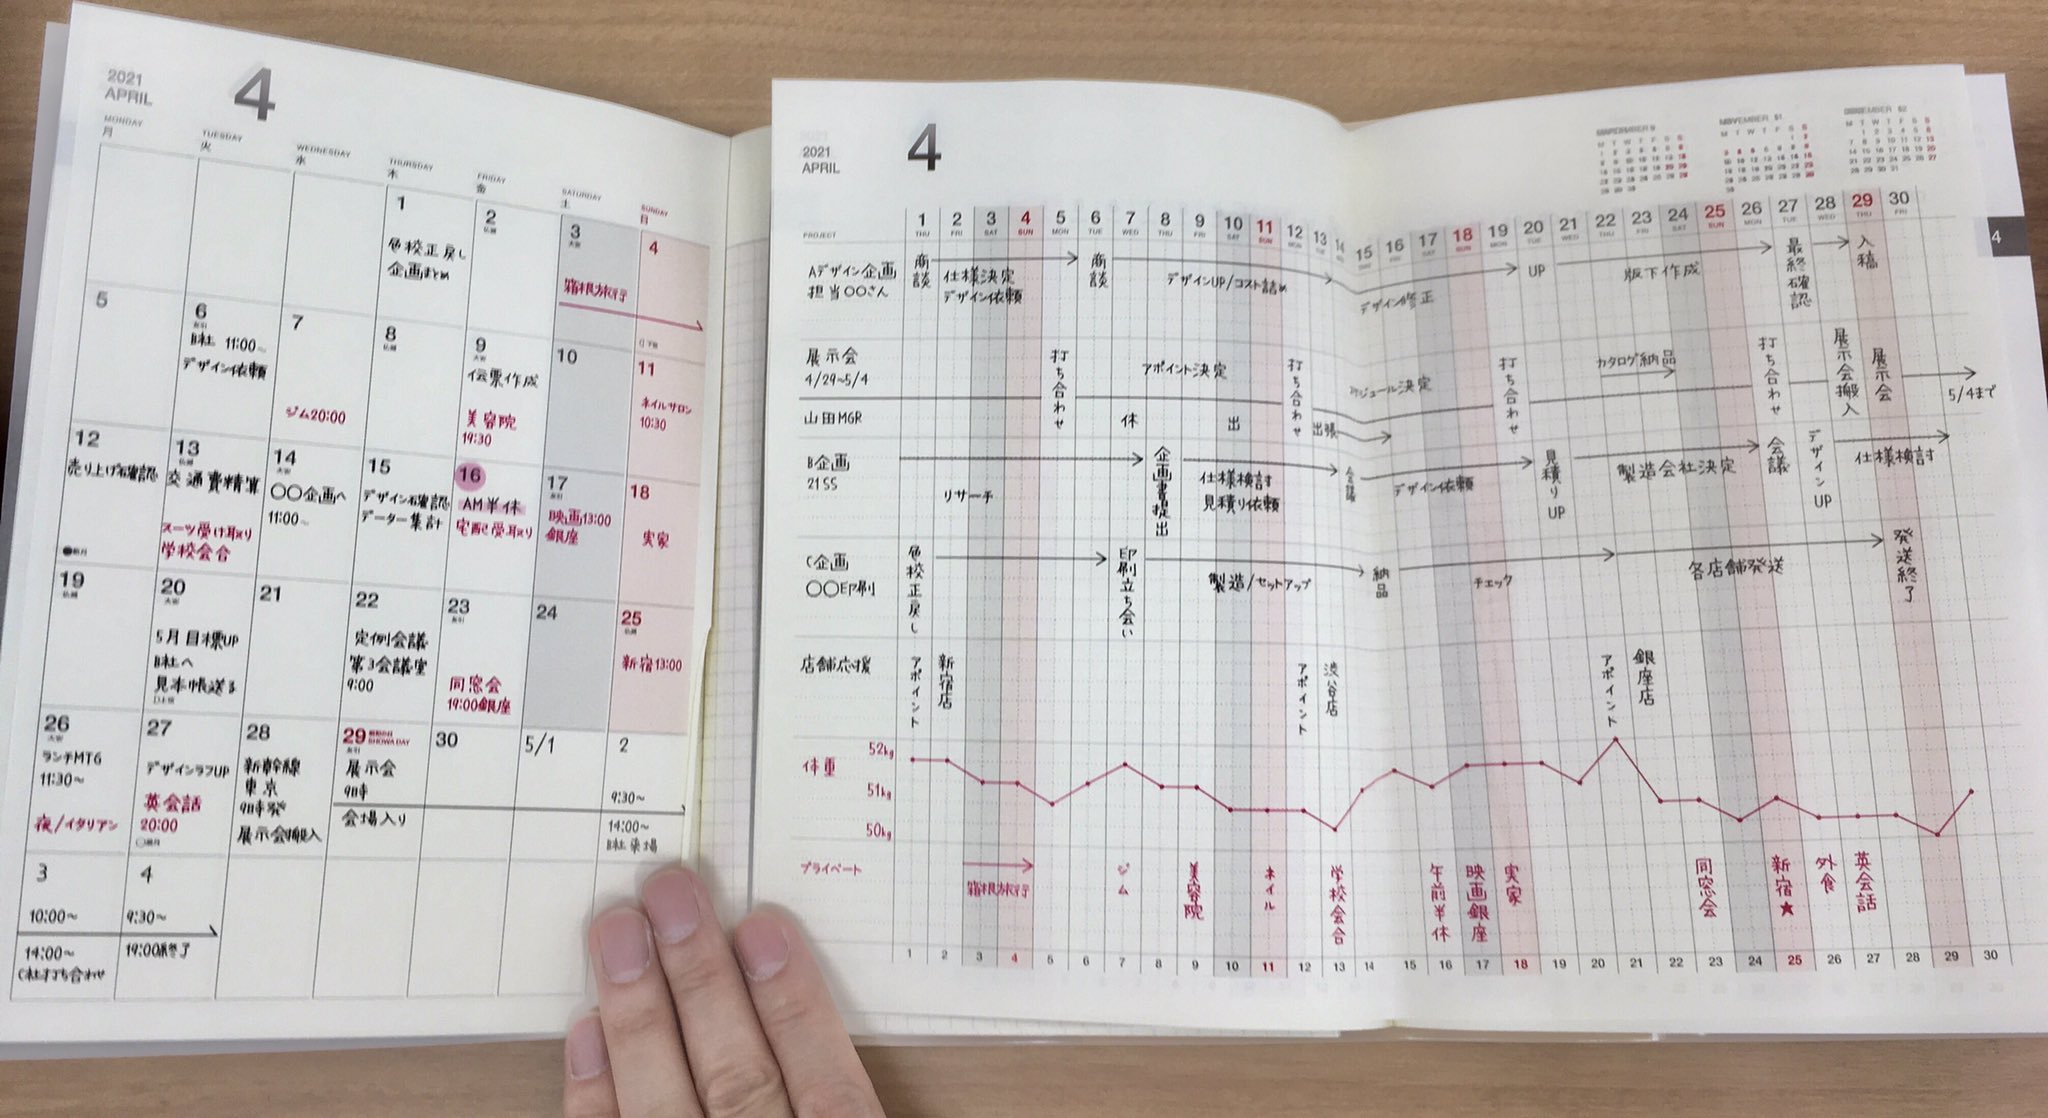 2021
APRIL
4
MONDAY
月
TUESDAY
火
WEDNESDAY
水
THURSDAY
木
FRIDAY
金
SATURDAY
土
SUNDAY
日
1
色校正戻し
企画まとめ
2
仏滅
3
大安
箱根旅行
4
5
6
友引
B社 11:00~
デザイン依頼
7
ジム20:00
8
仏滅
9
大安
伝票作成
美容院
19:30
10
11
ネイルサロン
10:30
12
売り上げ確認
13
仏滅
交通費精算
スーツ受け取り
学校会合
14
大安
〇〇企画へ
11:00~
15
デザイン確認
データー集計
16
AM半休
宅配受取り
17
友引
映画13:00
銀座
18
実家
19
仏滅
20
大安
5月目標UP
B社へ
見本帳送る
21
22
定例会議
第3会議室
9:00
23
友引
同窓会
19:00銀座
24
25
仏滅
新宿13:00
26
大安
ランチMTG
11:30~
夜/イタリアン
27
デザインラフUP
英会話
20:00
28
新幹線
東京
9時発
展示会搬入
29
SHOWA DAY
友引
展示会
9時
会場入り
30
5/1
2
9:30~
14:00~
B社来場
3
10:00~
14:00~
C社打ち合わせ
4
9:30~
19:00終了
2021
APRIL
4
4
PROJECT
1 2 3 4 5 6 7 8 9 10 11 12 13 14 15 16 17 18 19 20 21 22 23 24 25 26 27 28 29 30
THU FRI SAT SUN MON TUE WED THU FRI SAT SUN MON TUE WED THU FRI SAT SUN MON TUE WED THU FRI SAT SUN MON TUE WED THU FRI
Aデザイン企画
担当〇〇さん
商談
仕様決定
デザイン依頼
商談
デザインUP/コスト詰め
デザイン修正
UP
版下作成
最終確認
入稿
展示会
4/29~5/4
打ち合わせ
アポイント決定
打ち合わせ
スケジュール決定
打ち合わせ
カタログ納品
打ち合わせ
展示会搬入
展示会
5/4まで
山田MGR
休
出
出張
B企画
21SS
リサーチ
企画書提出
仕様検討
見積り依頼
デザイン依頼
見積りUP
製造会社決定
会議
デザインUP
仕様検討
C企画
〇〇印刷
色校正戻し
印刷立ち会い
製造/セットアップ
納品
チェック
各店舗発送
発送終了
店舗応援
アポイント
新宿店
アポイント
渋谷店
アポイント
銀座店
体重
52kg
51kg
50kg
プライベート
箱根旅行
ジム
美容院
ネイル
学校会合
午前半休
映画銀座
実家
同窓会
新宿★
外食
英会話
1 2 3 4 5 6 7 8 9 10 11 12 13 14 15 16 17 18 19 20 21 22 23 24 25 26 27 28 29 30